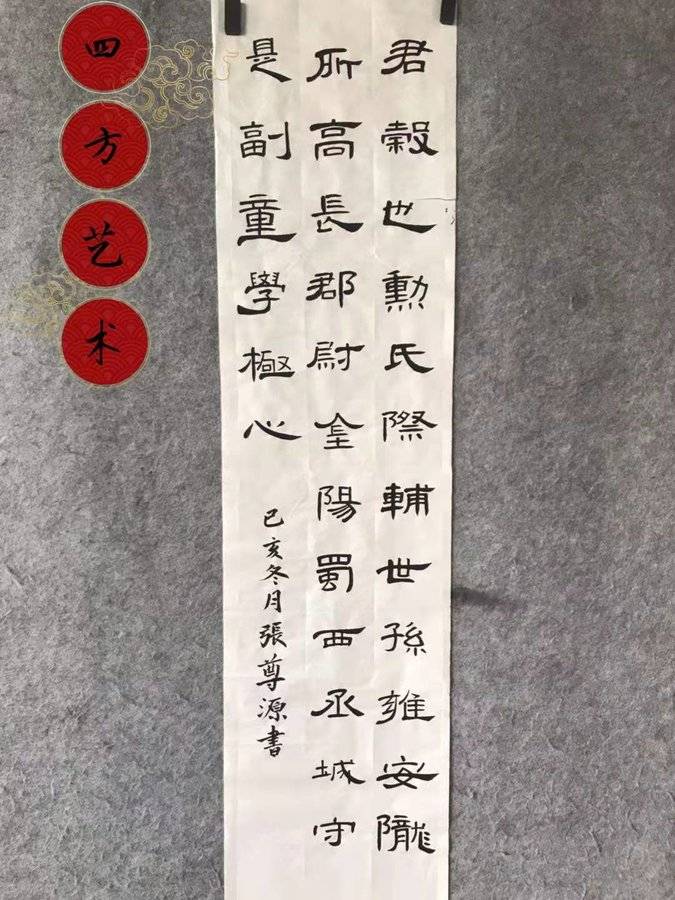 四方艺术
君穀也勳氏際輔世孫雍安隴
所高長郡尉金陽蜀西丞城守
是副童學極心
己亥冬月張尊源書